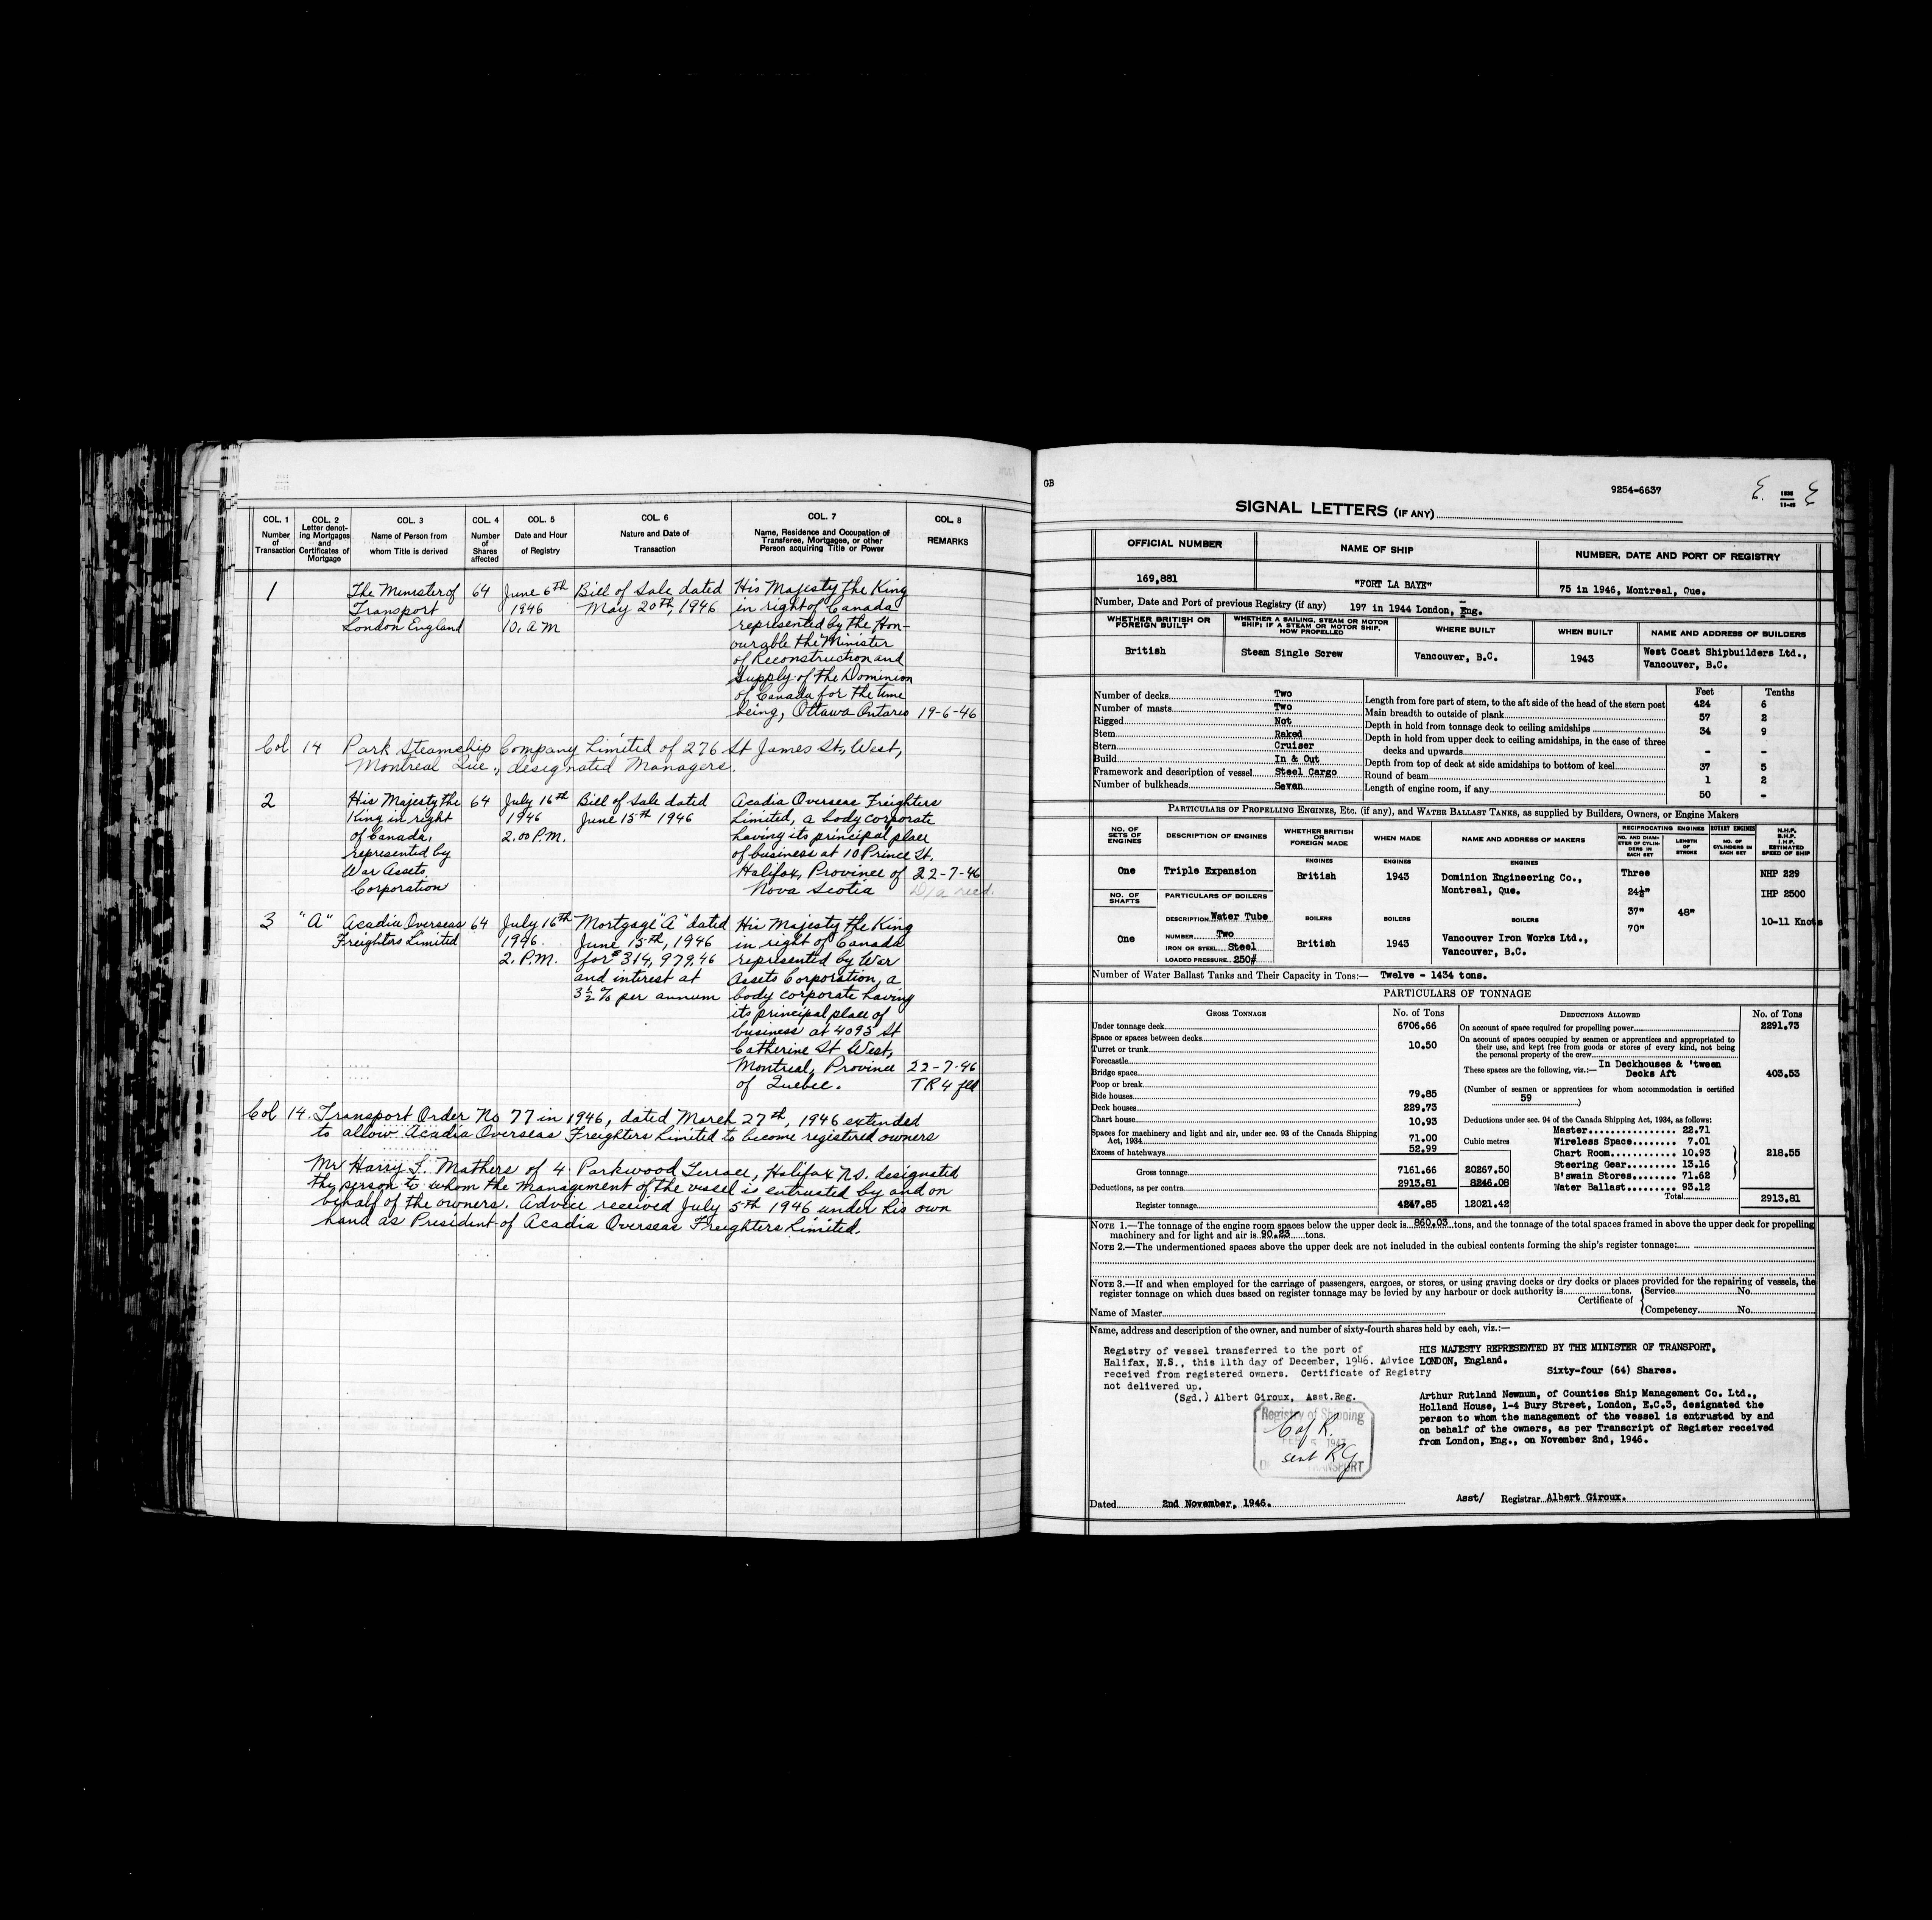 COL. 1
Number
of
Transaction
COL. 2
Letter denot-
ing Mortgages
and
Certificates of
Mortgage
COL. 3
Name of Person from
whom Title is derived
COL. 4
Number
of
Shares
affected
COL. 5
Date and Hour
of Registry
COL. 6
Nature and Date of
Transaction
COL. 7
Name, Residence and Occupation of
Transferee, Mortgagee, or other
Person acquiring Title or Power
COL. 8
REMARKS
1
The Minister of
Transport
London England
64
June 6th
1946
10. A M
Bill of Sale dated
May 20th, 1946
His Majesty the King
in right of Canada
represented by the Hon-
ourable the Minister
of Reconstruction and
Supply of the Dominion
of Canada for the time
being, Ottawa Ontario
19-6-46
Col 14 Park Steamship Company Limited of 276 St James St, West,
Montreal Que., designated Managers.
2
His Majesty the
King in right
of Canada,
represented by
War Assets
Corporation
64
July 16th
1946
2.00 P.M.
Bill of Sale dated
June 15th 1946
Acadia Overseas Freighters
Limited, a body corporate
having its principal place
of business at 10 Prince St,
Halifax, Province of
Nova Scotia
22-7-46
D/a recd.
3
"A"
Acadia Overseas
Freighters Limited
64
July 16th
1946.
2. P.M.
Mortgage "A" dated
June 15th, 1946
for $314,979.46
and interest at
3½% per annum
His Majesty the King
in right of Canada
represented by War
Assets Corporation, a
body corporate having
its principal place of
business at 4095 St
Catherine St West,
Montreal, Province
of Quebec.
22-7-46
TR 4 fld
Col 14. Transport Order No 77 in 1946, dated March 27th, 1946 extended
to allow Acadia Overseas Freighters Limited to become registered owners
Mr Harry I. Mathers of 4 Parkwood Terrace, Halifax N.S. designated
the person to whom the management of the vessel is entrusted by and on
behalf of the owners. Advice received July 5th 1946 under his own
hand as President of Acadia Overseas Freighters Limited.
GB
9254-6637
SIGNAL LETTERS (IF ANY)
OFFICIAL NUMBER
NAME OF SHIP
NUMBER, DATE AND PORT OF REGISTRY
169,881
"FORT LA BAYE"
75 in 1946, Montreal, Que.
Number, Date and Port of previous Registry (if any) 197 in 1944 London, Eng.
WHETHER BRITISH OR
FOREIGN BUILT
WHETHER A SAILING, STEAM OR MOTOR
SHIP; IF A STEAM OR MOTOR SHIP,
HOW PROPELLED
WHERE BUILT
WHEN BUILT
NAME AND ADDRESS OF BUILDERS
British
Steam Single Screw
Vancouver, B.C.
1943
West Coast Shipbuilders Ltd.,
Vancouver, B.C.
Feet Tenths
Number of decks Two
Number of masts Two
Rigged Not
Stem Raked
Stern Cruiser
Build In & Out
Framework and description of vessel Steel Cargo
Number of bulkheads Seven
Length from fore part of stem, to the aft side of the head of the stern post 424 6
Main breadth to outside of plank 57 2
Depth in hold from tonnage deck to ceiling amidships 34 9
Depth in hold from upper deck to ceiling amidships, in the case of three
decks and upwards - -
Depth from top of deck at side amidships to bottom of keel 37 5
Round of beam 1 2
Length of engine room, if any 50 -
PARTICULARS OF PROPELLING ENGINES, ETC. (if any), and WATER BALLAST TANKS, as supplied by Builders, Owners, or Engine Makers
NO. OF
SETS OF
ENGINES
DESCRIPTION OF ENGINES
WHETHER BRITISH
OR
FOREIGN MADE
WHEN MADE
NAME AND ADDRESS OF MAKERS
RECIPROCATING ENGINES
ROTARY ENGINES
NO. AND DIAM-
ETER OF CYLIN-
DERS IN
EACH SET
LENGTH
OF
STROKE
NO. OF
CYLINDERS IN
EACH SET
N.H.P.
B.H.P.
I.H.P.
ESTIMATED
SPEED OF SHIP
ENGINES
ENGINES
ENGINES
One
Triple Expansion
British
1943
Dominion Engineering Co.,
Montreal, Que.
Three
24½"
37"
70"
48"
NHP 229
IHP 2500
10-11 Knots
NO. OF
SHAFTS
PARTICULARS OF BOILERS
DESCRIPTION Water Tube
NUMBER Two
IRON OR STEEL Steel
LOADED PRESSURE 250#
One
BOILERS
BOILERS
BOILERS
British
1943
Vancouver Iron Works Ltd.,
Vancouver, B.C.
Number of Water Ballast Tanks and Their Capacity in Tons:— Twelve - 1434 tons.
PARTICULARS OF TONNAGE
GROSS TONNAGE
No. of Tons
DEDUCTIONS ALLOWED
No. of Tons
Under tonnage deck 6706.66
Space or spaces between decks
Turret or trunk 10.50
Forecastle
Bridge space
Poop or break
Side houses 79.85
Deck houses 229.73
Chart house 10.93
Spaces for machinery and light and air, under sec. 93 of the Canada Shipping
Act, 1934 71.00
Excess of hatchways 52.99
Cubic metres
Gross tonnage 7161.66 20267.50
Deductions, as per contra 2913.81 8246.08
Register tonnage 4247.85 12021.42
On account of space required for propelling power 2291.73
On account of spaces occupied by seamen or apprentices and appropriated to
their use, and kept free from goods or stores of every kind, not being
the personal property of the crew
These spaces are the following, viz.:— In Deckhouses & 'tween
Decks Aft 403.53
(Number of seamen or apprentices for whom accommodation is certified
59 )
Deductions under sec. 94 of the Canada Shipping Act, 1934, as follows:
Master 22.71
Wireless Space 7.01
Chart Room 10.93
Steering Gear 13.16
B'swain Stores 71.62
Water Ballast 93.12
218.55
Total 2913.81
NOTE 1.—The tonnage of the engine room spaces below the upper deck is 860.03 tons, and the tonnage of the total spaces framed in above the upper deck for propelling
machinery and for light and air is 90.23 tons.
NOTE 2.—The undermentioned spaces above the upper deck are not included in the cubical contents forming the ship's register tonnage:
NOTE 3.—If and when employed for the carriage of passengers, cargoes, or stores, or using graving docks or dry docks or places provided for the repairing of vessels, the
register tonnage on which dues based on register tonnage may be levied by any harbour or dock authority is tons.
Certificate of
Service No.
Competency No.
Name of Master
Name, address and description of the owner, and number of sixty-fourth shares held by each, viz.:—
Registry of vessel transferred to the port of
Halifax, N.S., this 11th day of December, 1946. Advice
received from registered owners. Certificate of Registry
not delivered up.
(Sgd.) Albert Giroux, Asst.Reg.
Registry of Shipping
C of R.
sent RG
TRANSPORT
HIS MAJESTY REPRESENTED BY THE MINISTER OF TRANSPORT,
LONDON, England.
Sixty-four (64) Shares.
Arthur Rutland Newnum, of Counties Ship Management Co. Ltd.,
Holland House, 1-4 Bury Street, London, E.C.3, designated the
person to whom the management of the vessel is entrusted by and
on behalf of the owners, as per Transcript of Register received
from London, Eng., on November 2nd, 1946.
Dated 2nd November, 1946.
Asst/ Registrar Albert Giroux.